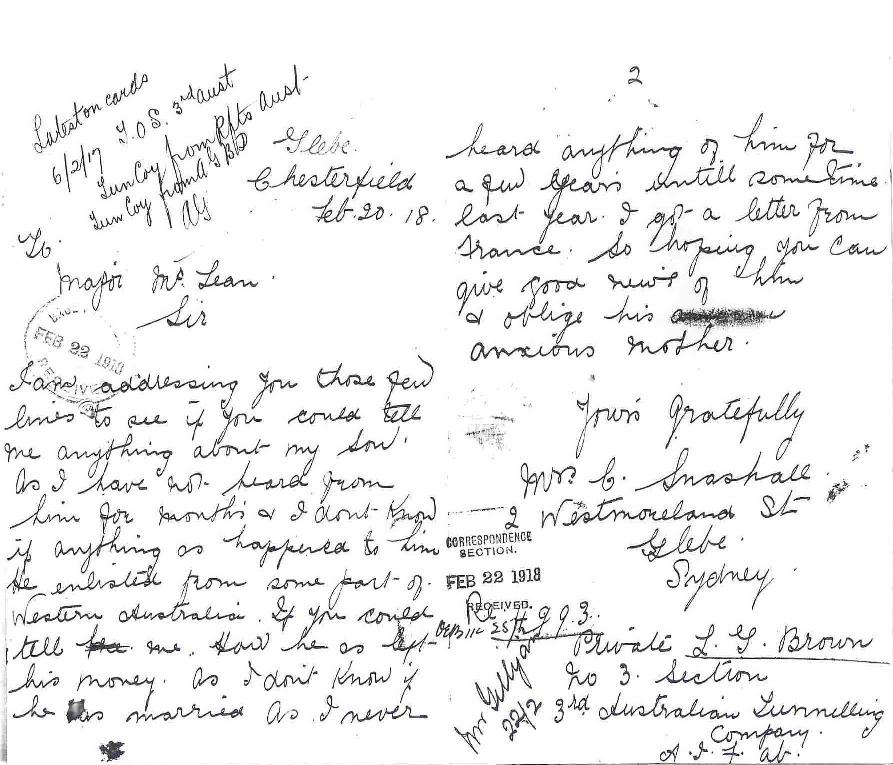 Labston cards
6/2/17 T.O.S. 3rd Aust
Tun Coy from Rfts Aust-
Tun Coy from A G B D
Glebe.
Chesterfield
Feb. 20. 18.
To.
Major Mc Lean.
Sir
FEB 22 1918
RECEIVED
I am addressing you those few
lines to see if you could tell
me anything about my son.
As I have not heard from
him for months & I dont know
if anything as happened to him
He enlisted from some part of.
Western Australia. If you could
tell me. How he as left
his money. As I don't know if
he was married As I never
2
heard anything of him for
a few years untill sometime
last year. I got a letter from
France. So hoping you can
give good news of him
& oblige his
anxious mother.
Yours Gratefully
Mrs. C. Snashall.
2 Westmoreland St
Glebe.
Sydney.
CORRESPONDENCE
SECTION.
FEB 22 1918
RECEIVED.
Re 4993.
Private L. G. Brown
No 3. Section
3rd Australian Tunnelling
Company.
A. I. F. ab.
Mr Gellyan
22/2